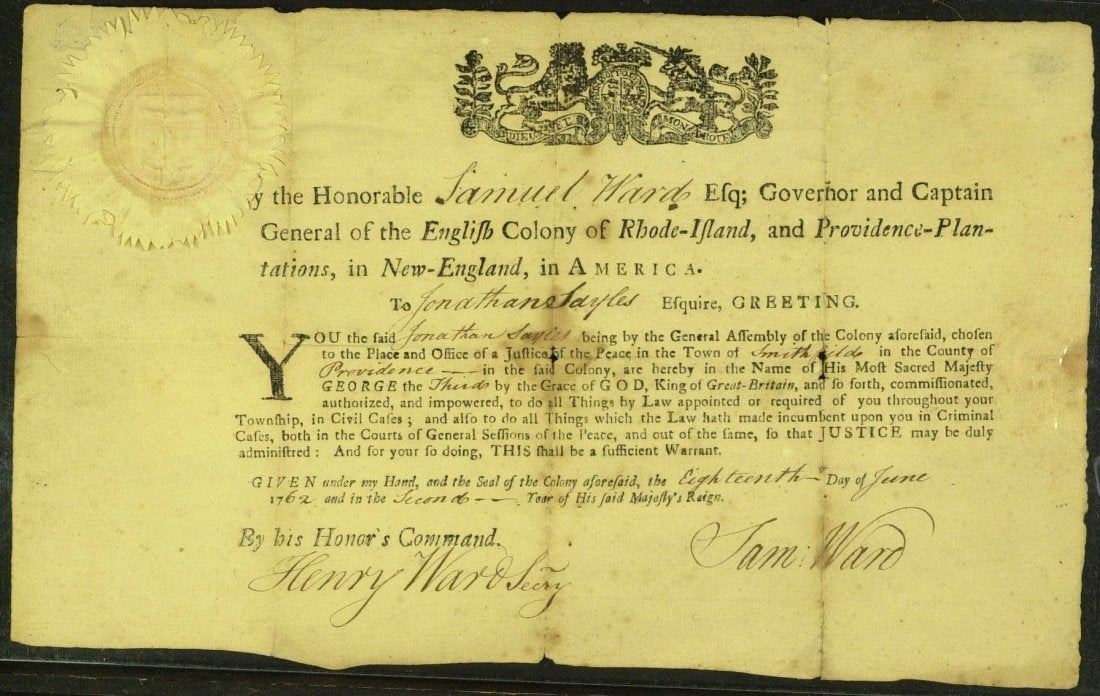 DIEU ET MON DROIT
y the Honorable Samuel Ward Esq; Governor and Captain
General of the Engliſh Colony of Rhode-Iſland, and Providence-Plan-
tations, in New-England, in AMERICA.
To Jonathan Sayles Eſquire, GREETING.
YOU the ſaid Jonathan Sayles being by the General Aſſembly of the Colony aforeſaid, choſen
to the Place and Office of a Juſtice of the Peace in the Town of Smithfield in the County of
Providence in the ſaid Colony, are hereby in the Name of His Moſt Sacred Majeſty
GEORGE the Third by the Grace of GOD, King of Great-Britain, and ſo forth, commiſſionated,
authorized, and impowered, to do all Things by Law appointed or required of you throughout your
Townſhip, in Civil Caſes; and alſo to do all Things which the Law hath made incumbent upon you in Criminal
Caſes, both in the Courts of General Seſſions of the Peace, and out of the ſame, ſo that JUSTICE may be duly
adminiſtred: And for your ſo doing, THIS ſhall be a ſufficient Warrant.
GIVEN under my Hand, and the Seal of the Colony aforeſaid, the Eighteenth Day of June
1762 and in the Second Year of His ſaid Majeſty's Reign.
By his Honor's Command.
Henry Ward Secry
Sam: Ward